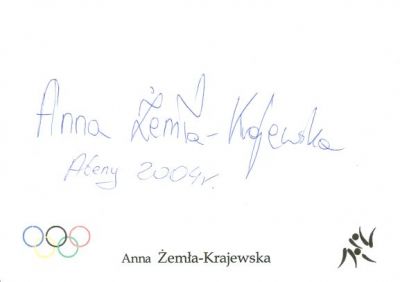 Anna Żemła-Krajewska
Ateny 2004r.
Anna Żemła-Krajewska